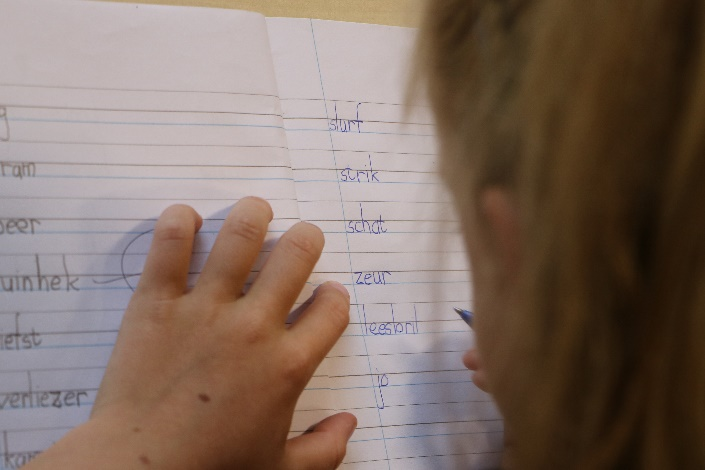 g
ram
beer
uinhek
iefst
verliezer
kar
slurf
strik
schat
zeur
leesbril